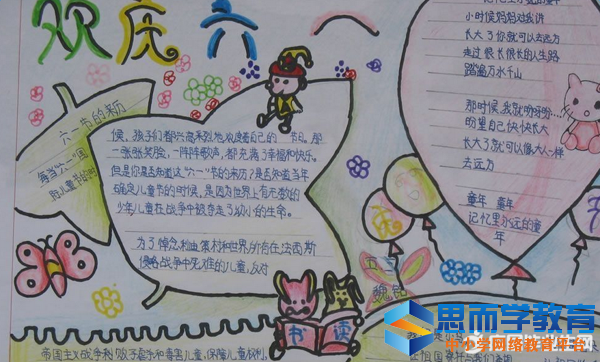 欢庆六一
六一节的来历
每当"六一"国
际儿童节的时
候，孩子们都兴高采烈地欢度着自己的 节日。那
一张张笑脸，一阵阵歌声，都充满了幸福和快乐。
但是你是否知道这"六一"节的来历？是否知道当年
确定儿童节的时候，是因为世界上有无数的
少年儿童在战争中被夺走了幼小的生命。
为了悼念利迪策村和世界所有在法西斯
侵略战争中死难的儿童，反对
帝国主义战争和
儿童，保障儿童权利
小时候妈妈对我讲
长大了你就可以去远方
走过很长很长的人生路
踏遍万水千山
那时候，我就呀呀呀
盼望自己快快长大
长大了就可以像大人一样
去远方
童年 童年
记忆里永远的童
年
六
一
书 读
思而学教育
中小学网络教育平台